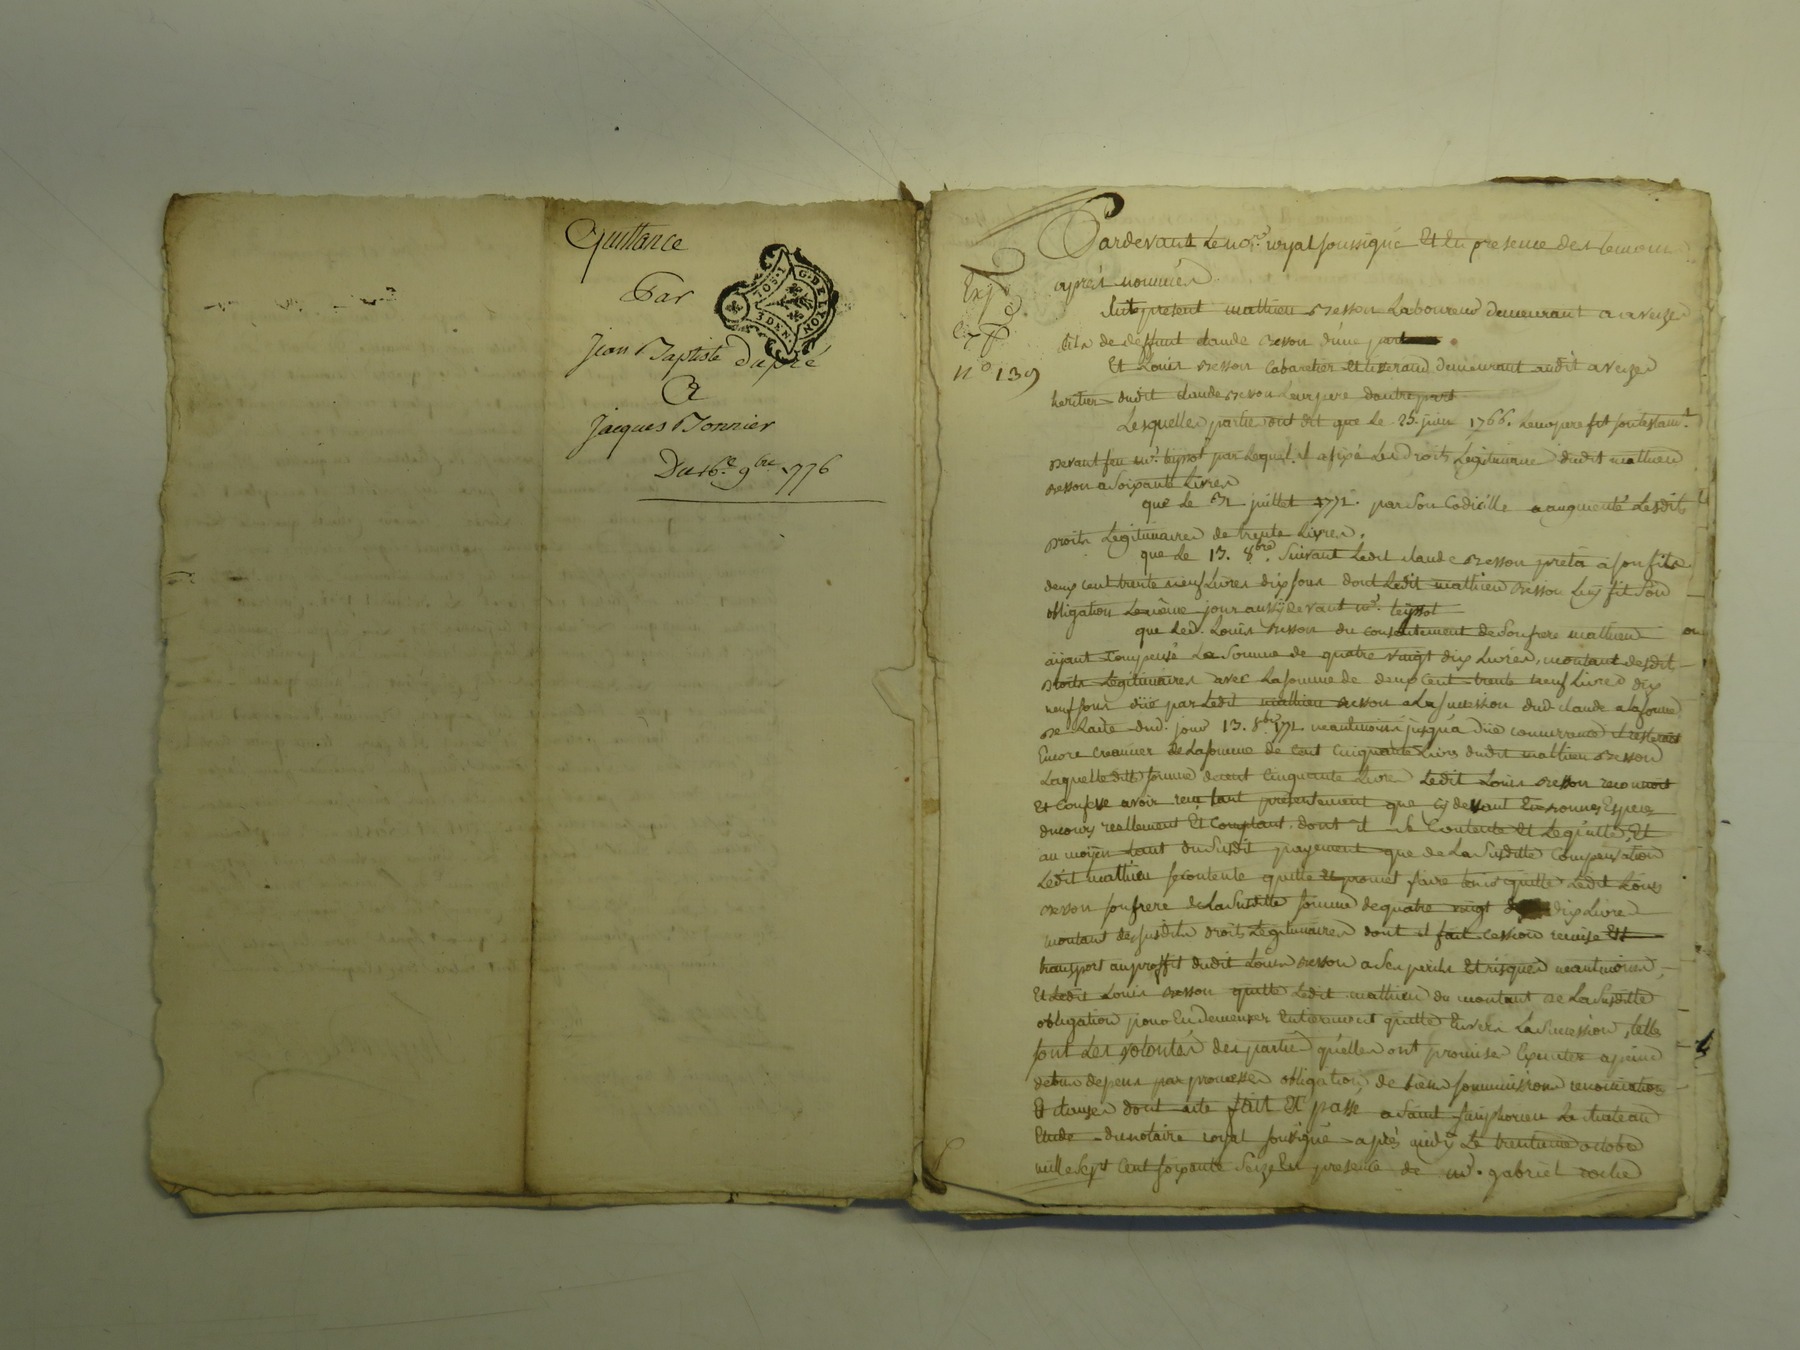 Quittance
Par
Jean Baptiste Dupré
A
Jacques Bonnier
Du 16e. 9bre 1776
G. DE LYON
3 DEN.
Expé
N° 139
Pardevant Le nore. royal soussigné Et En presence des temoins
après nommés
fut present mathieu Besson Laboureur demeurant a aveize
fils de deffunt claude Besson d'une part
Et Louis Besson Cabaretier Et tisserand demeurant audit aveize
heritier dudit claude Besson Leur pere dautre part
Lesquelles partie ont dit que le 25. juin 1766. Leur pere fit son testamt.
Devant feu me. teyssot par Lequel il a fixé Les Droits Legitimaire dudit mathieu
Besson a Soixante Livres
que Le 31 juillet 1771. par Son Codicille a augmenté Lesdits
Droits Legitimaires de trente Livres.
que Le 13. 8bre Suivant Ledit claude Besson preta a son fils
deux cent trente neuf Livres dix sous dont Ledit mathieu Besson Luy fit Son
obligation Le même jour aussy Devant me. teyssot
que Led. Louis Besson du consentement de Son frere mathieu
ayant Compensé La Somme de quatre vingt dix Livres, montant desdit
Droits Legitimaires avec La somme de deux Cent trente neuf Livres dix
neuf sous düe par Ledit mathieu Besson a La succession dud. claude a la forme
De L'acte dud. jour 13. 8bre 1771 neantmoins jusqu'a düe concurrance il restoit
Encore creancier De La somme de Cent Cinquante Livres dudit mathieu Besson
Laquelle ditte somme de cent Cinquante Livres Ledit Louis Besson reconnoit
Et Confesse avoir reçu tant presentement que cy devant En bonnes Especes
du cours reellement Et Comptant. dont il se Contente Et Le quitte, Et
au moyen tant du Susdit payement que de La Susditte Compensation
Ledit mathieu se contente quitte et promet faire tenir quitte Ledit Louis
Besson son frere de La Susditte somme de quatre vingt dix Livres
montant des susdits droits Legitimaires dont il fait cession remise Et
transport au proffit dudit Louis Besson a Ses perils Et risques neantmoins,
Et Ledit Louis Besson quitte Ledit mathieu du montant De La Susditte
obligation pour En Demeurer Entierement quitte Envers La Succession, telles
sont Les volontés des parties qu'elles ont promises Executer a peine
de tous depens par promesses obligation de biens soummissions renonciations
Et clauses dont acte fait Et passé a Saint Simphorien Le chateau
Etude du notaire royal soussigné après midy Le trentieme octobre
mille Sept Cent soixante Seize En presence de me. gabriel roche